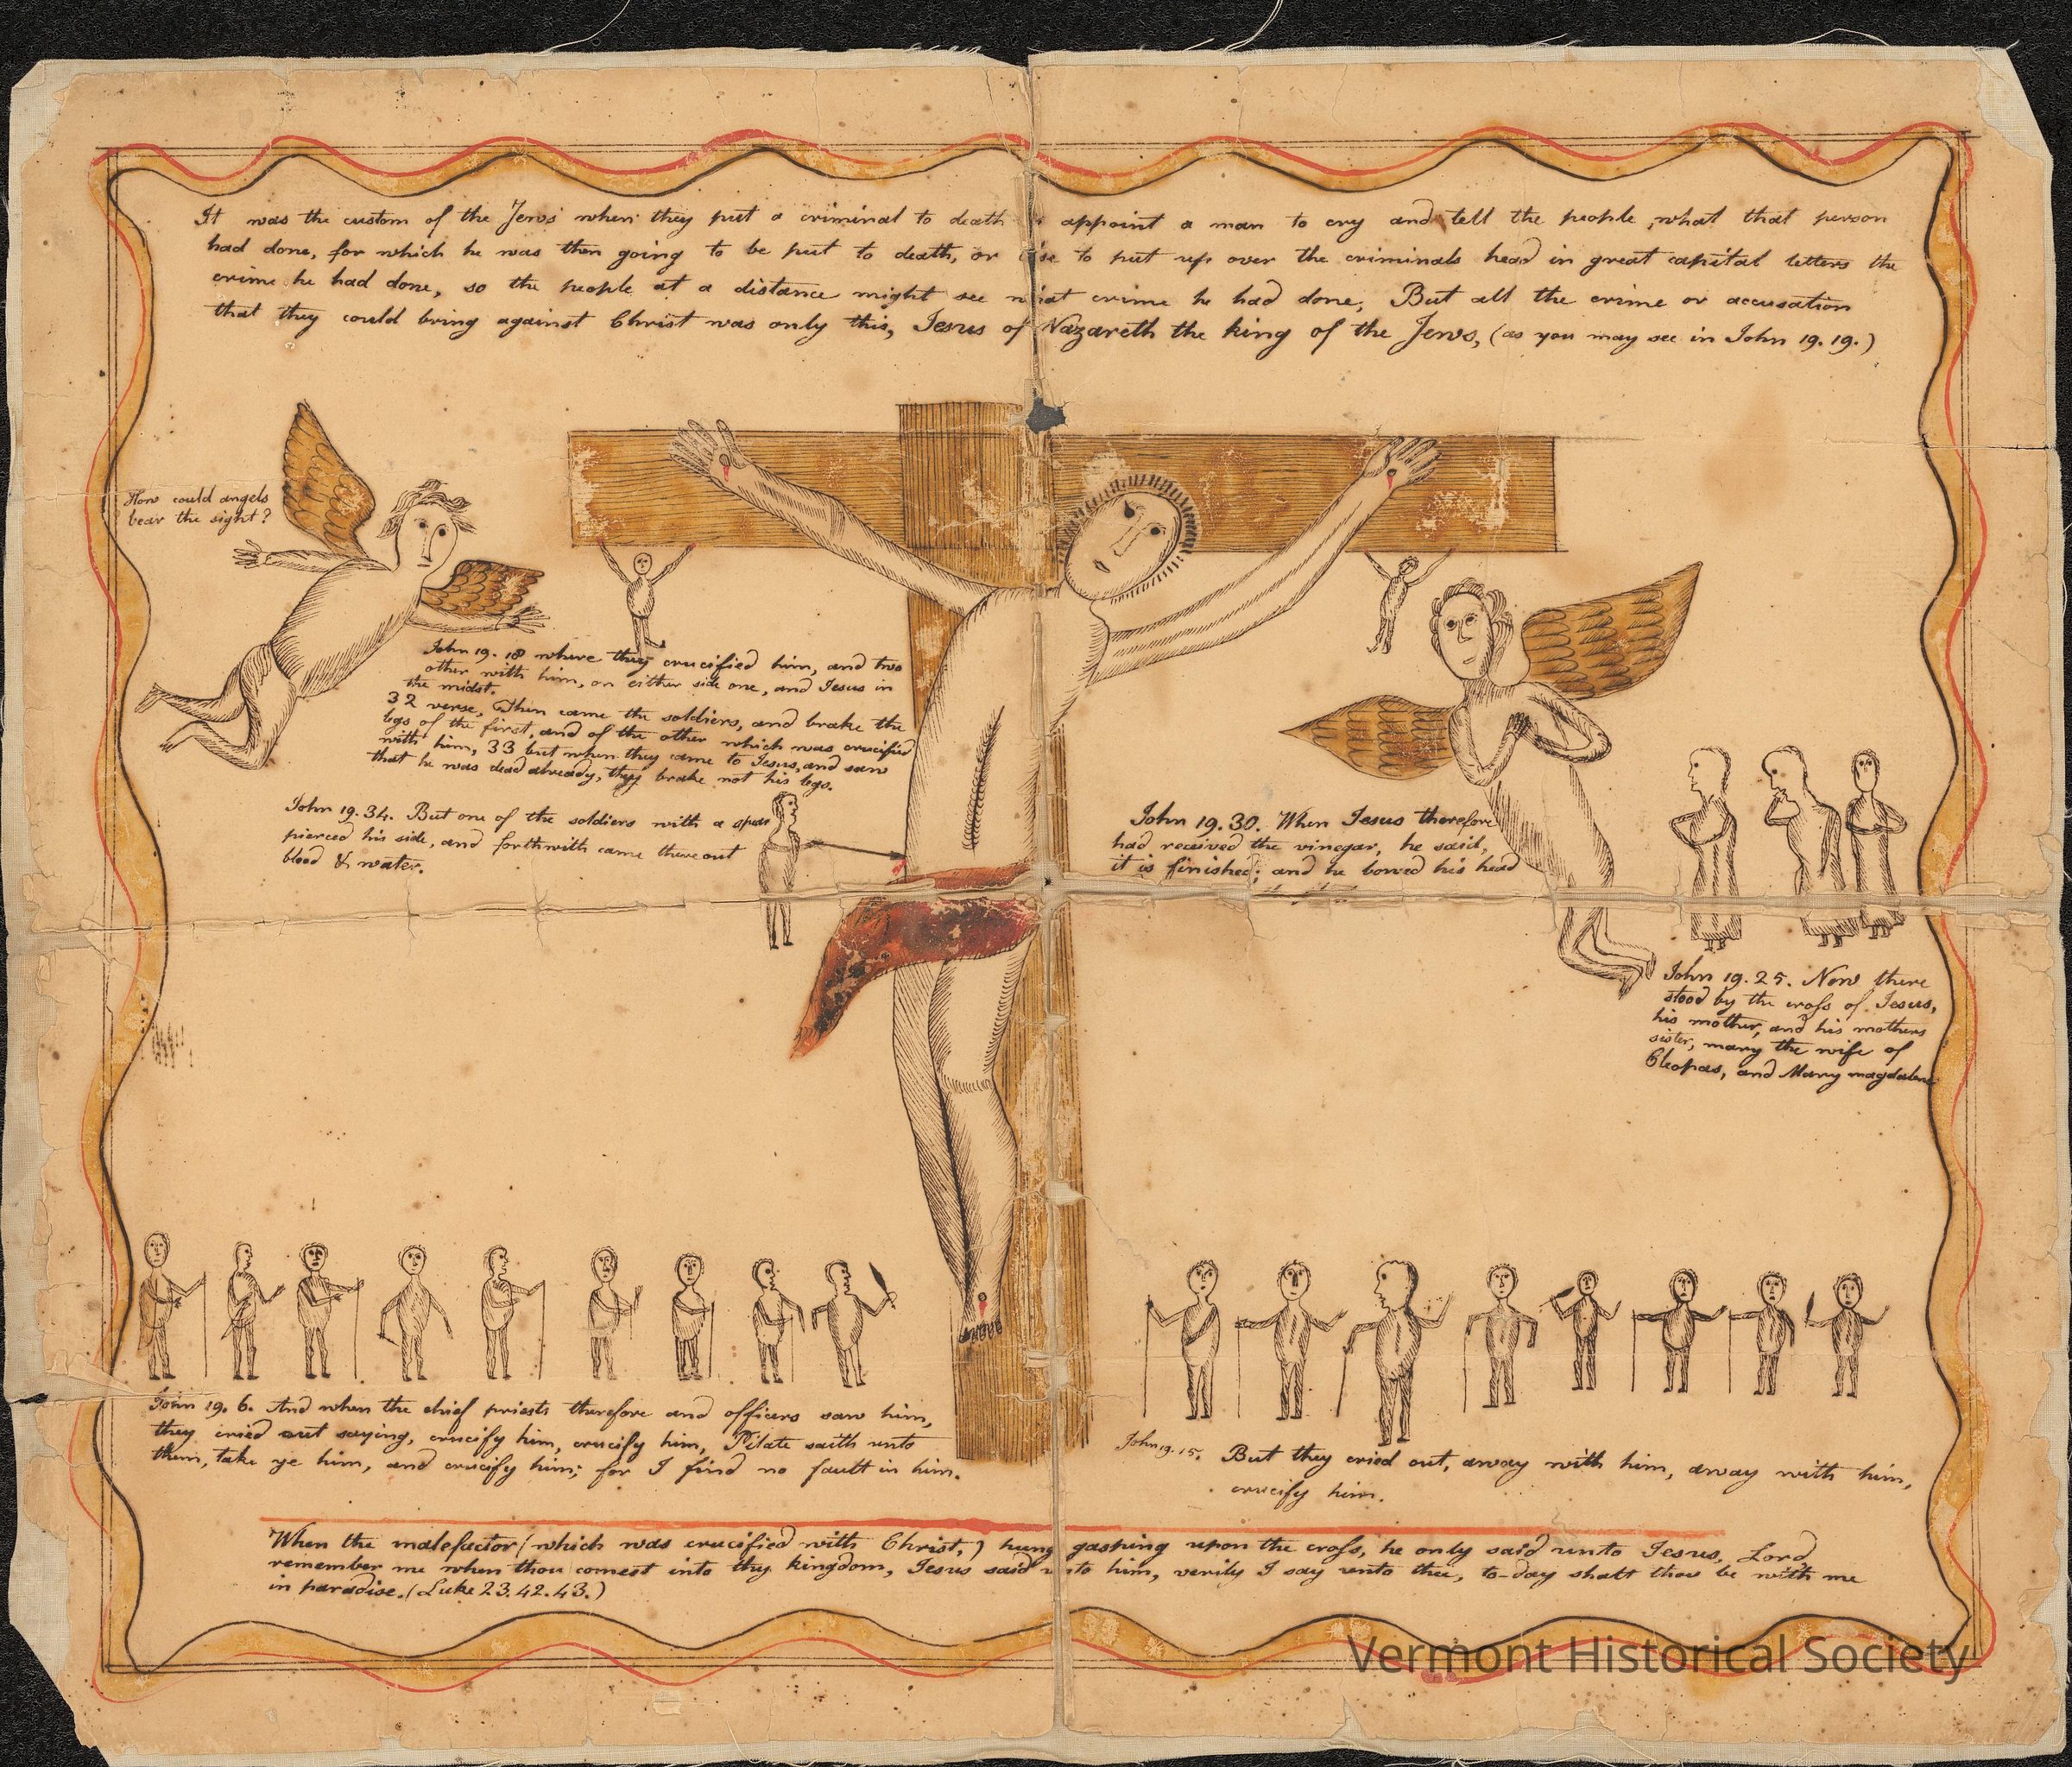 It was the custom of the Jews when they put a criminal to death appoint a man to cry and tell the people, what that person
had done, for which he was then going to be put to death, or else to put up over the criminals head in great capital letters the
crime he had done, so the people at a distance might see what crime he had done; But all the crime or accusation
that they could bring against Christ was only this, Jesus of Nazareth the king of the Jews, (as you may see in John 19. 19.)
How could angels
bear the sight?
John 19. 18 where they crucified him, and two
other with him, on either side one, and Jesus in
the midst.
32 verse. Then came the soldiers, and brake the
legs of the first, and of the other which was crucified
with him, 33 but when they came to Jesus, and saw
that he was dead already, they brake not his legs.
John 19. 34. But one of the soldiers with a spear
pierced his side, and forthwith came there out
blood & water.
John 19. 30. When Jesus therefore
had received the vinegar, he said,
it is finished; and he bowed his head
John 19. 25. Now there
stood by the cross of Jesus,
his mother, and his mothers
sister, mary the wife of
Cleopas, and Mary magdalene
John 19. 6. And when the chief priests therefore and officers saw him,
they cried out saying, crucify him, crucify him, Pilate saith unto
them, take ye him, and crucify him; for I find no fault in him.
John 19. 15. But they cried out, away with him, away with him,
crucify him.
When the malefactor (which was crucified with Christ,) hung gasping upon the cross, he only said unto Jesus, Lord
remember me when thou comest into thy kingdom, Jesus said unto him, verily I say unto thee, to-day shalt thou be with me
in paradise. (Luke 23. 42. 43.)
Vermont Historical Society